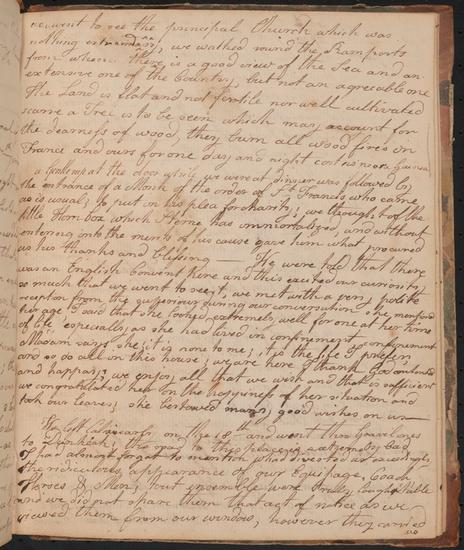 we went to see the principal Church which was
nothing extraordinary, we walked round the Ramparts
from whence there is a good view of the Sea and an
extensive one of the Country, but not an agreeable one
The Land is flat and not fertile nor well cultivated
scarce a Tree is to be seen which may account for
the dearness of wood, they burn all wood fires in
France and ours for one day and night cost us
a Gentle at the door while we were at dinner was followed by
the entrance of a Monk of the order of St Francis who came
as is usual; to put in his plea for charity; we thought of the
little Horn box which Sterne has immortalized, and without
entering into the merits of his cause gave him what procured
us his thanks and blessing — We were told that there
was an English Convent here and this excited our curiosity
so much that we went to see it, we met with a very polite
reception from the superiour during our conversation she mentioned
her age I said that she looked extremely well for one at her time
of life especially as she had lived in confinement, confinement
Madam says she; it is none to me; it is the life I prefer
and so do all in this house; we are here I thank God contented
and happy; we enjoy all that we wish and that is sufficient
we congratulated her on the happiness of her situation and
took our leaves, she bestowed many good wishes on us —
We left Calais early on the 18th and went thro Gravelines
to Dunkirk; the road to this place is extremely bad
I had almost forgot to mention what diverted us exceedingly
the ridiculous appearance of our Equipage, Coach
Horses & Men, tout ensemble were truly laughable
and we did not spare them that act of notice as we
viewed them from our window, however they carried
us